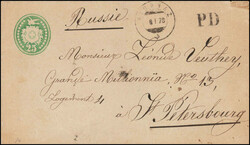 Russie
PD
Monsieur Léonide Veuthey,
Grande Millionnia, No 13,
Logement 4
à St Petersbourg